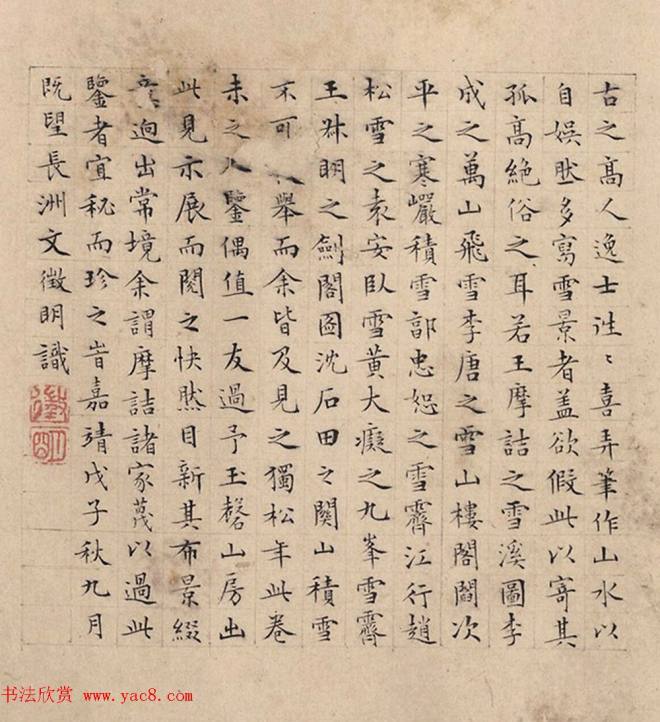 古之高人逸士往〻喜弄筆作山水以
自娛然多寫雪景者盖欲假此以寄其
孤高絶俗之耳若王摩詰之雪溪圖李
成之萬山飛雪李唐之雪山樓閣閻次
平之寒巗積雪郭忠恕之雪霽江行趙
松雪之袁安臥雪黃大癡之九峯雪霽
王叔明之劍閣圖沈石田之關山積雪
不可 舉而余皆及見之獨松年此卷
未之 鑒偶值一友過予玉磬山房出
此見示展而閱之快然目新其布景綴
意迥出常境余謂摩詰諸家蔑以過此
鑒者宜秘而珍之旹嘉靖戊子秋九月
既望長洲文徵明識
徵明
书法欣赏 www.yac8.com